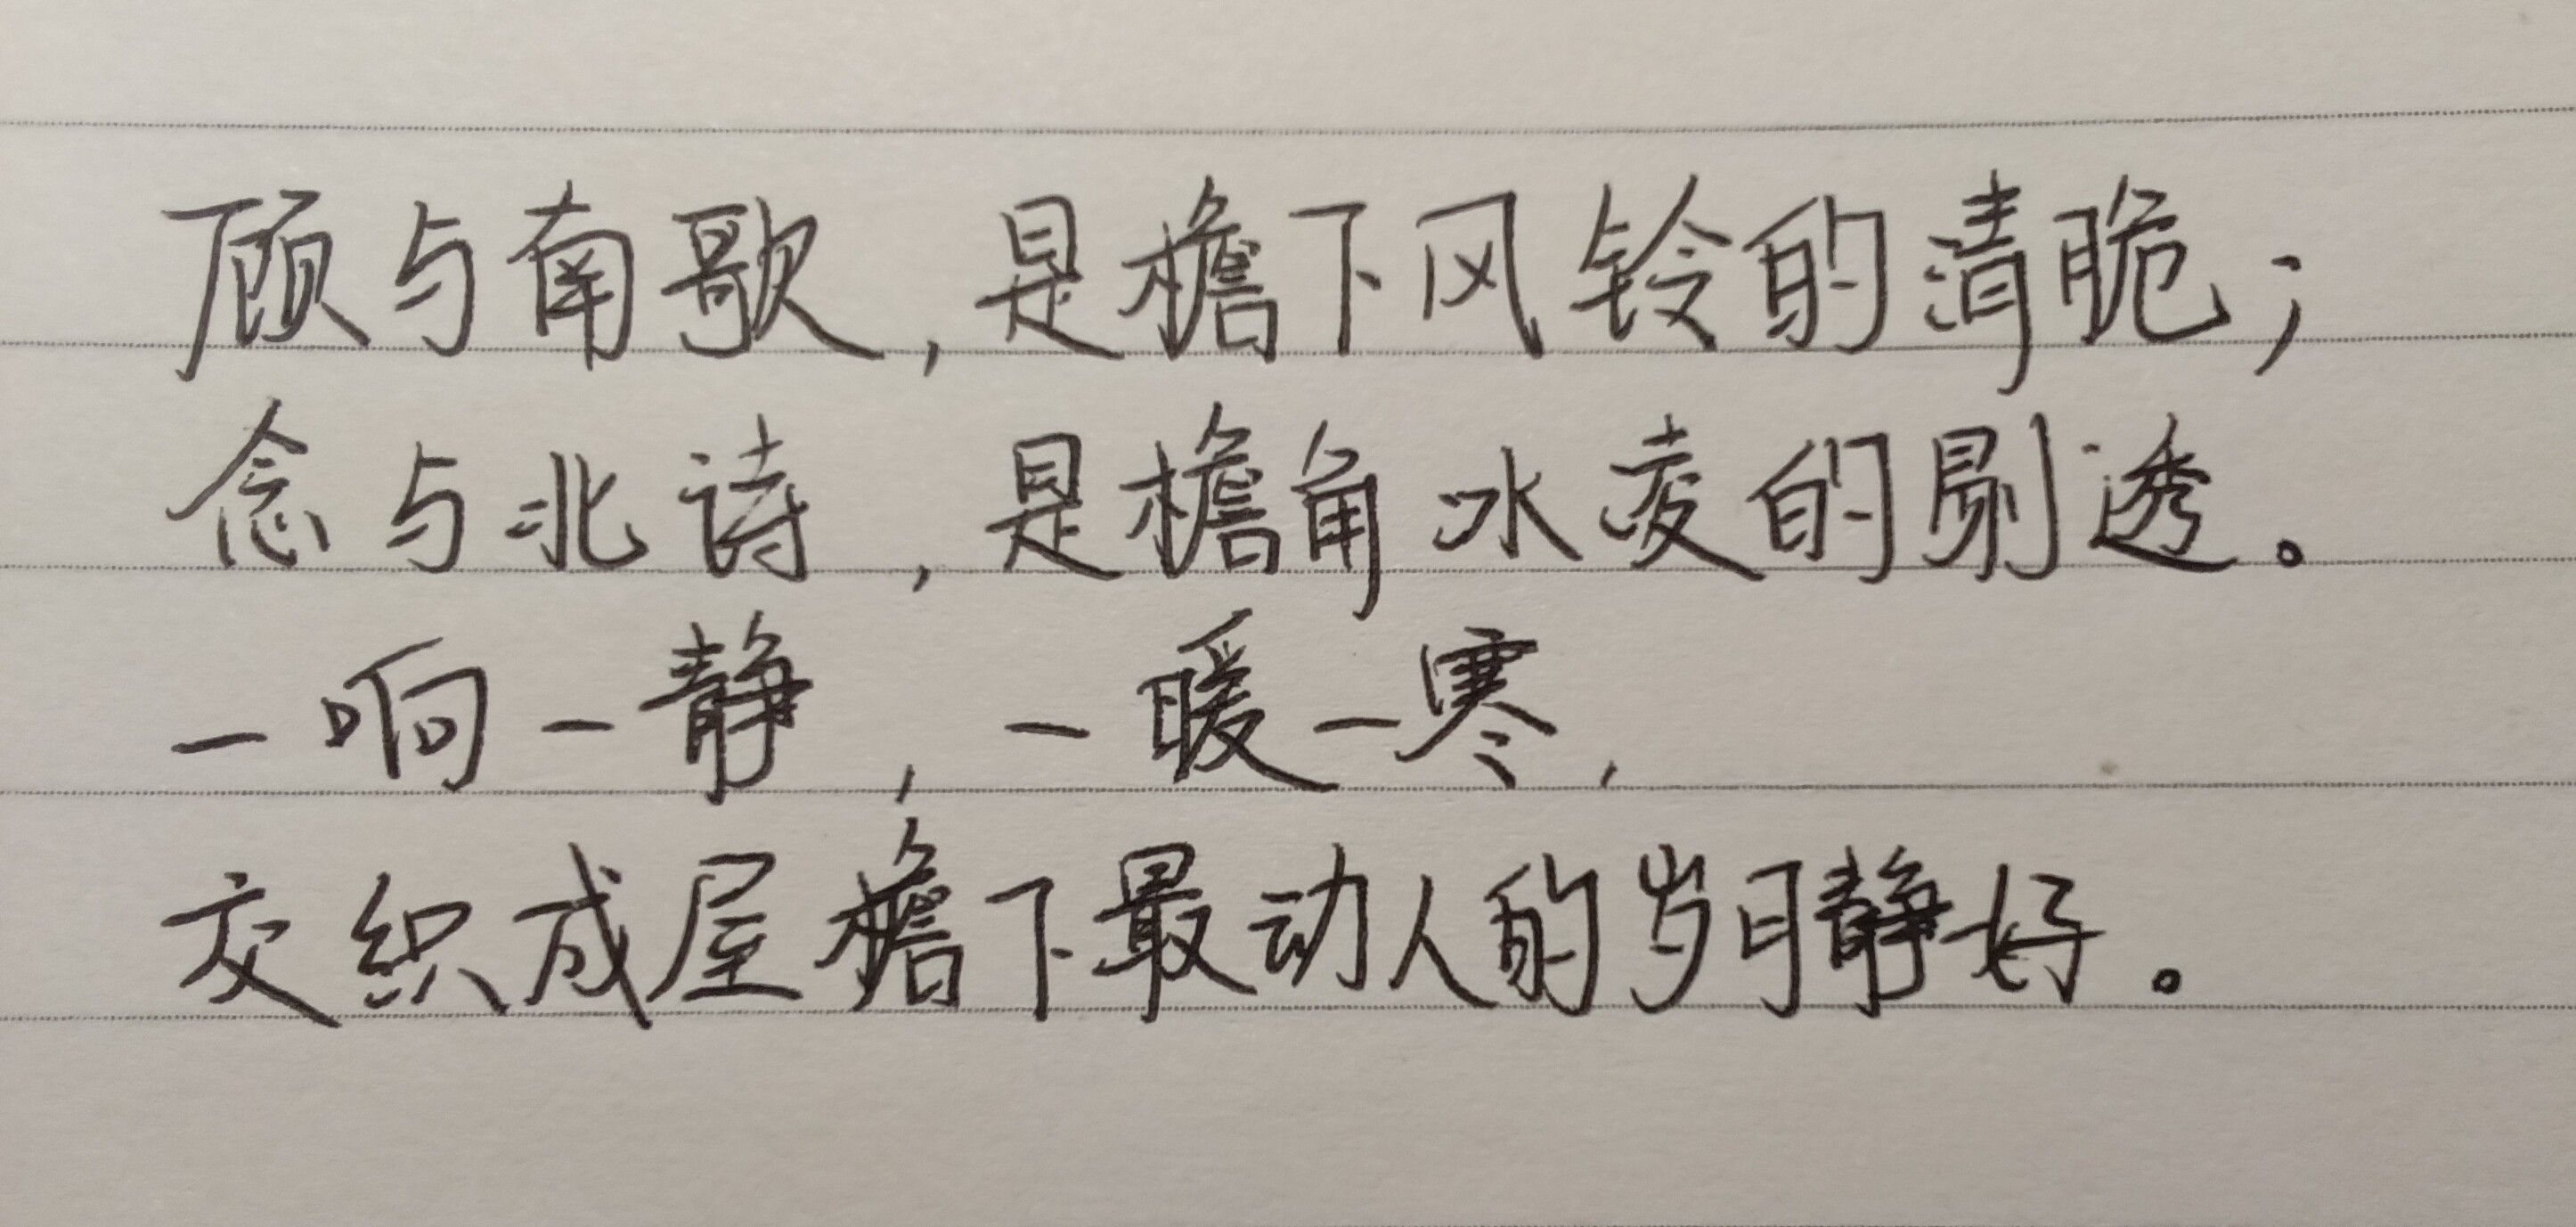 顾与南歌，是檐下风铃的清脆；
念与北诗，是檐角冰凌的剔透。
一响一静，一暖一寒，
交织成屋檐下最动人的岁月静好。